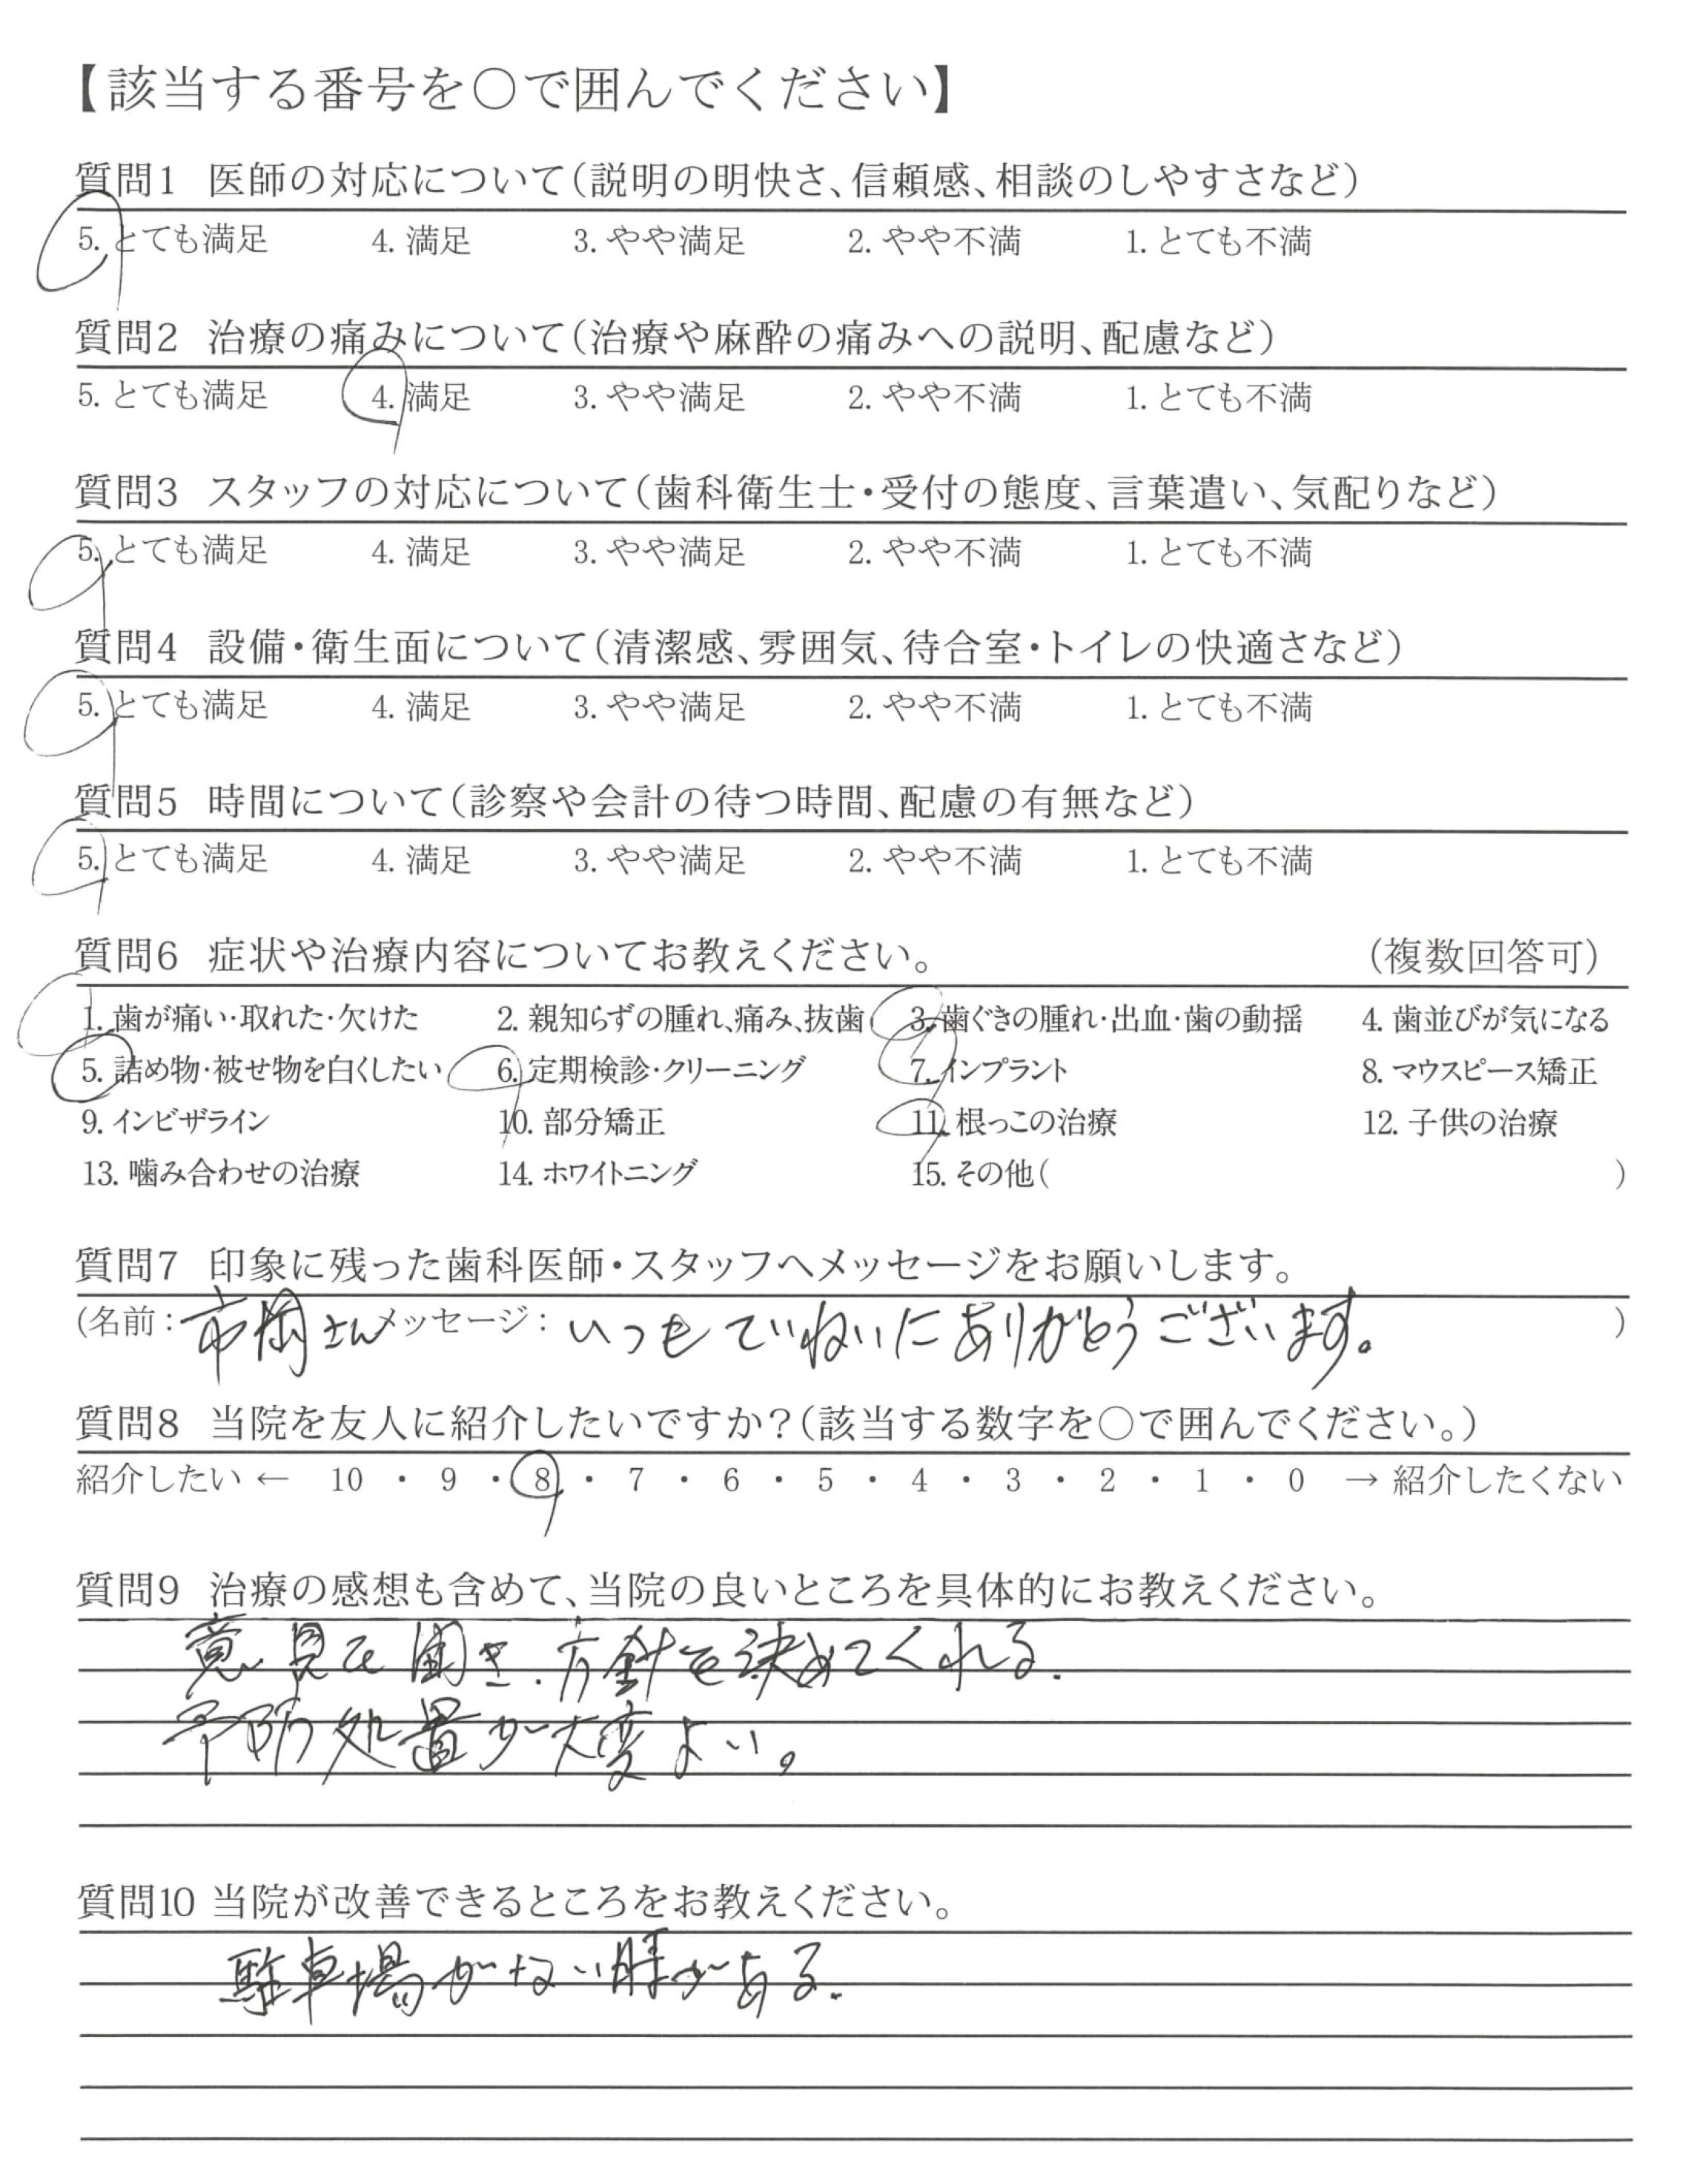 【該当する番号を○で囲んでください】
質問1 医師の対応について(説明の明快さ、信頼感、相談のしやすさなど)
5. とても満足 4. 満足 3. やや満足 2. やや不満 1. とても不満
質問2 治療の痛みについて(治療や麻酔の痛みへの説明、配慮など)
5. とても満足 4. 満足 3. やや満足 2. やや不満 1. とても不満
質問3 スタッフの対応について(歯科衛生士・受付の態度、言葉遣い、気配りなど)
5. とても満足 4. 満足 3. やや満足 2. やや不満 1. とても不満
質問4 設備・衛生面について(清潔感、雰囲気、待合室・トイレの快適さなど)
5. とても満足 4. 満足 3. やや満足 2. やや不満 1. とても不満
質問5 時間について(診察や会計の待つ時間、配慮の有無など)
5. とても満足 4. 満足 3. やや満足 2. やや不満 1. とても不満
質問6 症状や治療内容についてお教えください。 (複数回答可)
1. 歯が痛い・取れた・欠けた 2. 親知らずの腫れ、痛み、抜歯 3. 歯ぐきの腫れ・出血・歯の動揺 4. 歯並びが気になる
5. 詰め物・被せ物を白くしたい 6. 定期検診・クリーニング 7. インプラント 8. マウスピース矯正
9. インビザライン 10. 部分矯正 11. 根っこの治療 12. 子供の治療
13. 噛み合わせの治療 14. ホワイトニング 15. その他( )
質問7 印象に残った歯科医師・スタッフへメッセージをお願いします。
(名前: 市岡さん メッセージ: いつもていねいにありがとうございます。 )
質問8 当院を友人に紹介したいですか?(該当する数字を○で囲んでください。)
紹介したい ← 10 ・ 9 ・ 8 ・ 7 ・ 6 ・ 5 ・ 4 ・ 3 ・ 2 ・ 1 ・ 0 → 紹介したくない
質問9 治療の感想も含めて、当院の良いところを具体的にお教えください。
意見を聞き、方針を決めてくれる.
予防処置が大変よい。
質問10 当院が改善できるところをお教えください。
駐車場がない時がある.